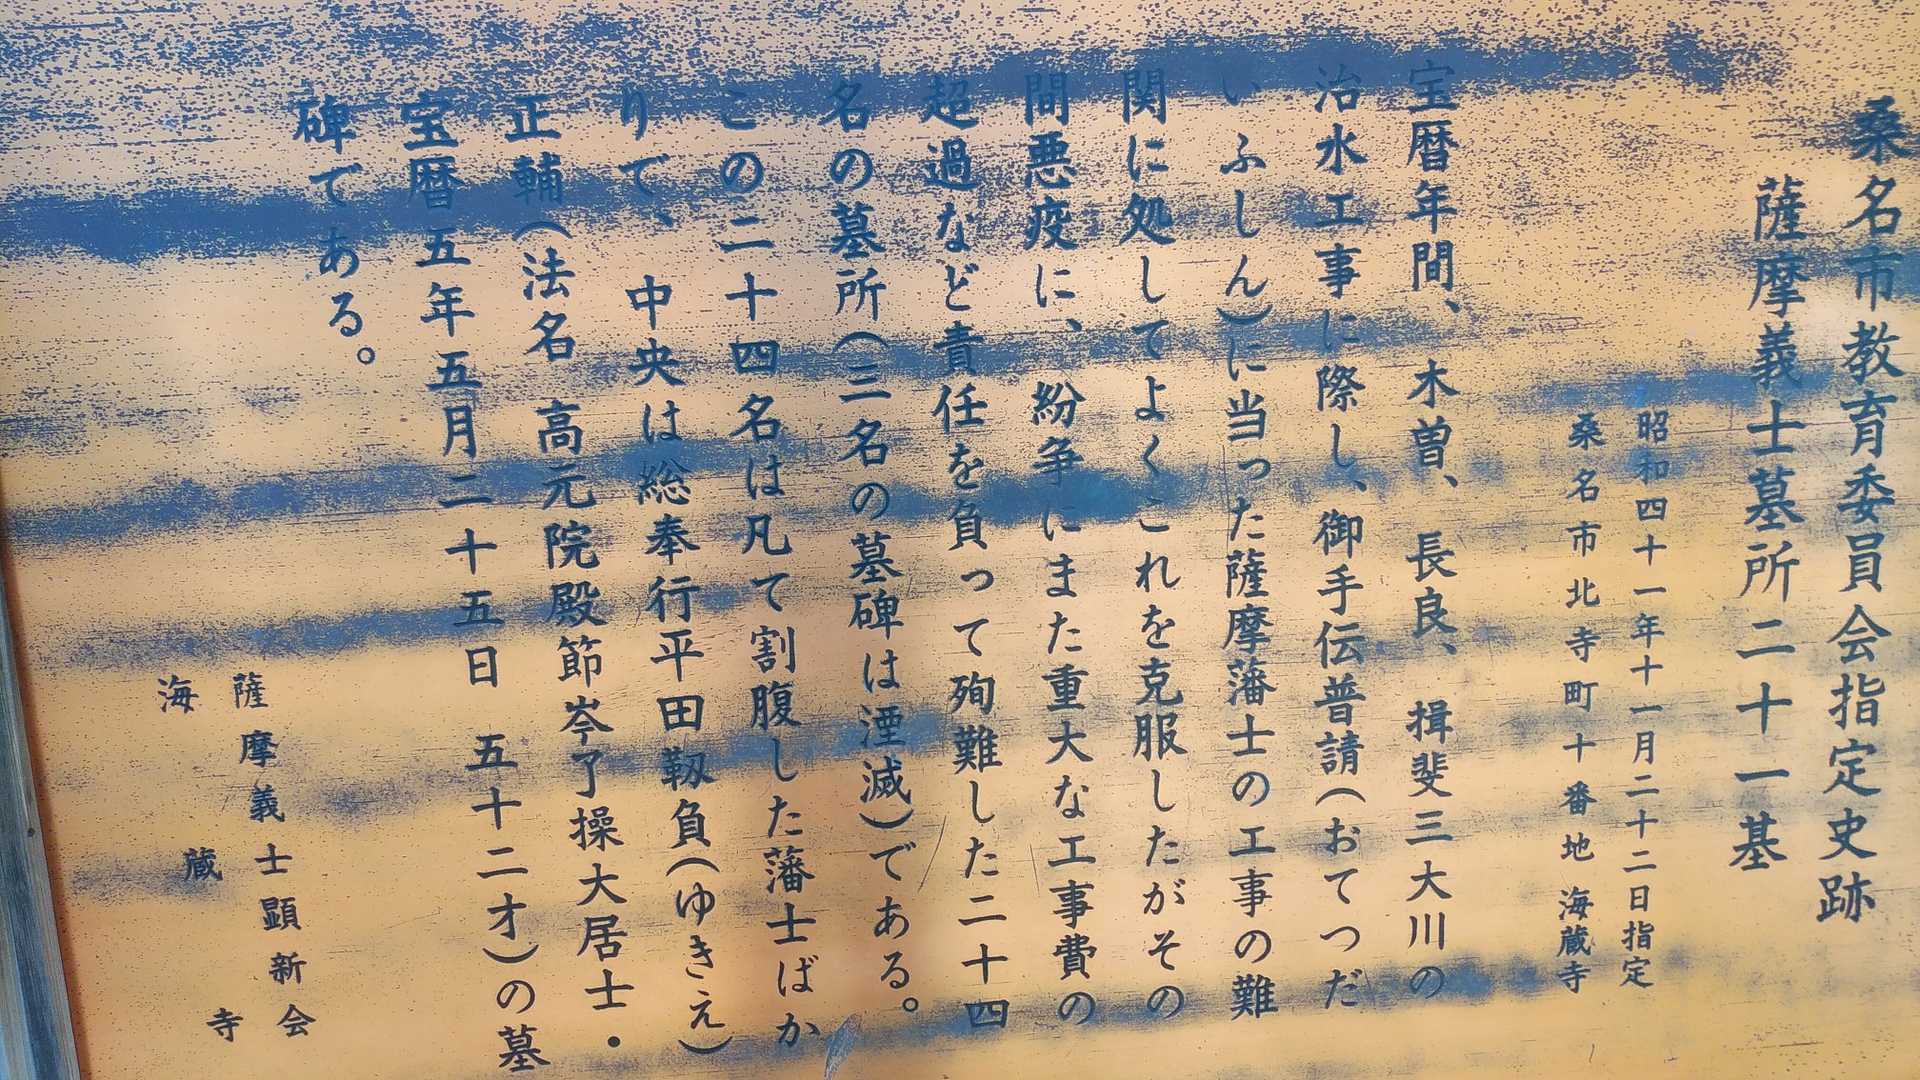 桑名市教育委員会指定史跡
薩摩義士墓所二十一基
昭和四十一年十一月二十二日指定
桑名市北寺町十番地 海蔵寺
宝暦年間、木曽、長良、揖斐三大川の
治水工事に際し、御手伝普請(おてつだ
いふしん)に当った薩摩藩士の工事の難
関に処してよくこれを克服したがその
間悪疫に、紛争にまた重大な工事費の
超過など責任を負って殉難した二十四
名の墓所(三名の墓碑は湮滅)である。
この二十四名は凡て割腹した藩士ばか
りで、中央は総奉行平田靱負(ゆきえ)
正輔(法名 高元院殿節岑了操大居士・
宝暦五年五月二十五日 五十二才)の墓
碑である。
薩摩義士顕新会
海蔵寺